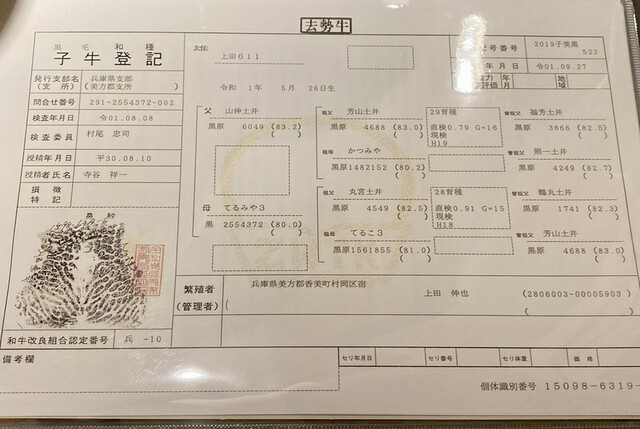 去勢牛
黒毛和種
子牛登記
発行支部名 兵庫県支部
(支所) (美方郡支所)
問合せ番号 291-2554372-002
検査年月日 令01.08.08
検査委員 村尾 忠司
授精年月日 平30.08.10
授精者氏名 寺谷 祥一
損徴
特記
鼻紋
和牛改良組合認定番号 兵 -10
備考欄
上田611
号番号 3019子美黒
522
年月日 令01.09.27
令和 1年 5月 26日生
父 山伸土井
黒原 6049 (83.2)
母 てるみや3
黒 2554372 (80.0)
祖父 芳山土井
黒原 4688 (83.0)
祖母 かつみや
黒原1482152 (80.2)
祖父 丸宮土井
黒原 4549 (82.5)
祖母 てるこ3
黒原1561855 (81.0)
29育種
直検0.79 G=16
現検
H19
28育種
直検0.91 G=15
現検
H18
曾祖父 福芳土井
黒原 3666 (82.5)
曾祖父 照一土井
黒原 4249 (82.7)
曾祖父 鶴丸土井
黒原 1741 (82.3)
曾祖父 芳山土井
黒原 4688 (83.0)
繁殖者 兵庫県美方郡香美町村岡区宿
(管理者) 上田 伸也 (2806003-00005903 )
セリ年月日 セリ番号 セリ体重 価格
個体識別番号 15098-6319-